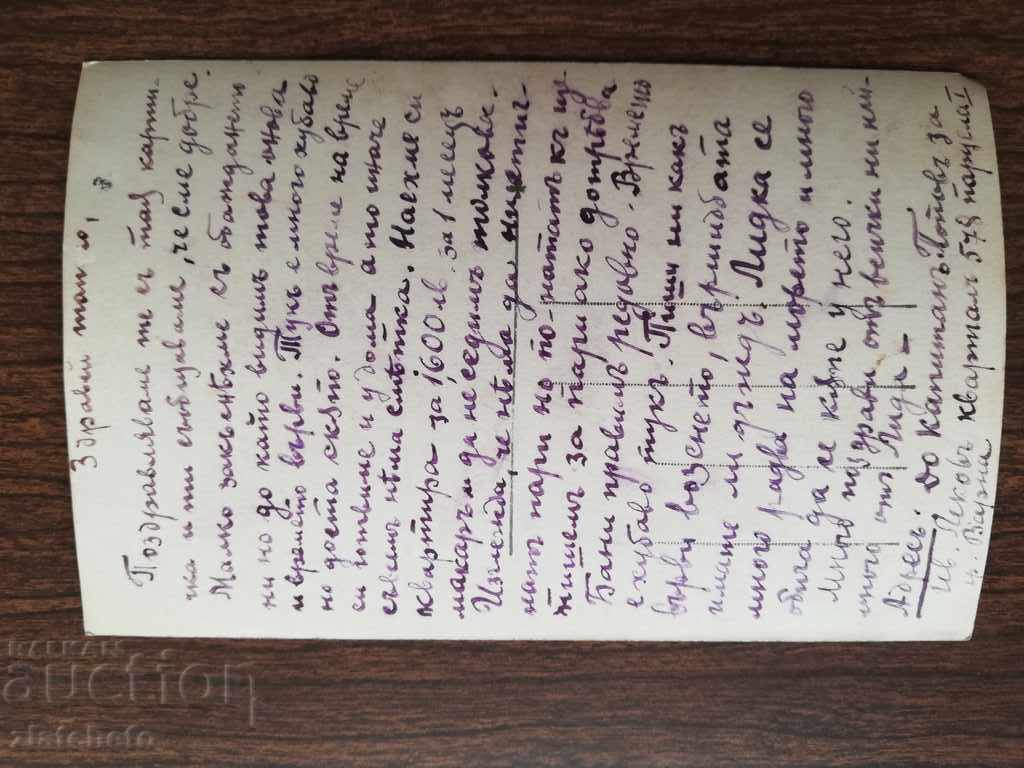 Здравей татко!
Поздравляваме те съ тая карти-
чка и ти съобщаваме, че сме добре.
Малко закъснѣхме съ обаждането
ни но до като видимъ това онова
и времето върви. Тукъ е много хубаво
но доста скѫпо. Отъ време на време
си готвиме и у дома а то иначе
съвсемъ нѣма смѣтка. Наехме си
квартира за 1600 лв. за 1 месецъ
макаръ и да не седимъ толкова.
Изглежда, че нѣма да ни стиг-
натъ пари но по-нататъкъ ще
пишемъ за пари ако дотрѣбва
Бани правимъ редовно. Времето
е хубаво тукъ. Пиши ни какъ
върви возенето, вършидбата
имате ли дъждъ. Лидка се
много радва на морето и много
обича да се кѫпе у него.
Много поздрави отъ всички ни най-
много отъ Лиди —
Адресъ: До Капитанъ Потовъ за
Ив. Пековъ кварталъ 578 парцелъ I
гр. Варна
BALKAN
auction
zlatcheto